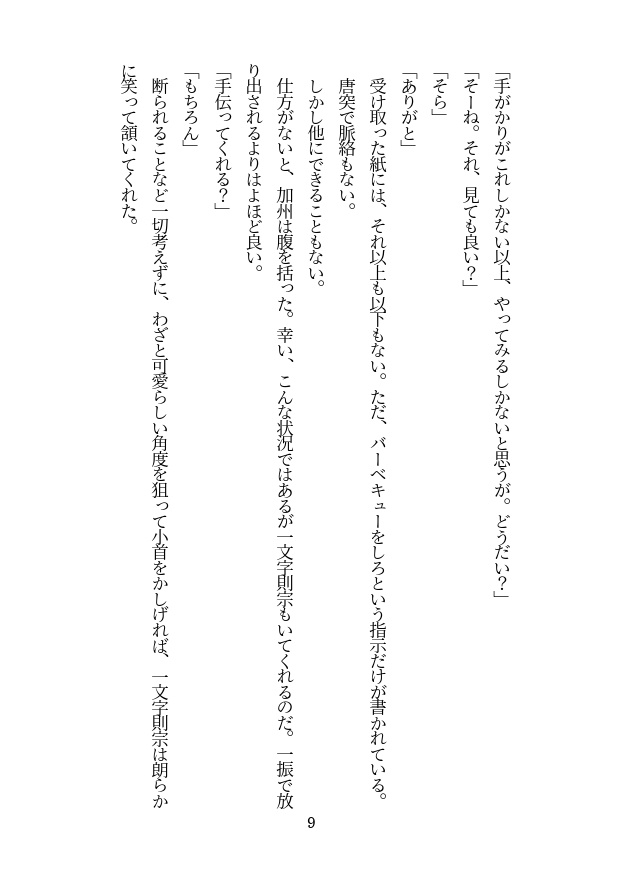 「手がかりがこれしかない以上、やってみるしかないと思うが。どうだい？」
「そーね。それ、見ても良い？」
「そら」
「ありがと」
　受け取った紙には、それ以上も以下もない。ただ、バーベキューをしろという指示だけが書かれている。
　唐突で脈絡もない。
　しかし他にできることもない。
　仕方がないと、加州は腹を括った。幸い、こんな状況ではあるが一文字則宗もいてくれるのだ。一振で放
り出されるよりはよほど良い。
「手伝ってくれる？」
「もちろん」
　断られることなど一切考えずに、わざと可愛らしい角度を狙って小首をかしげれば、一文字則宗は朗らか
に笑って頷いてくれた。
9